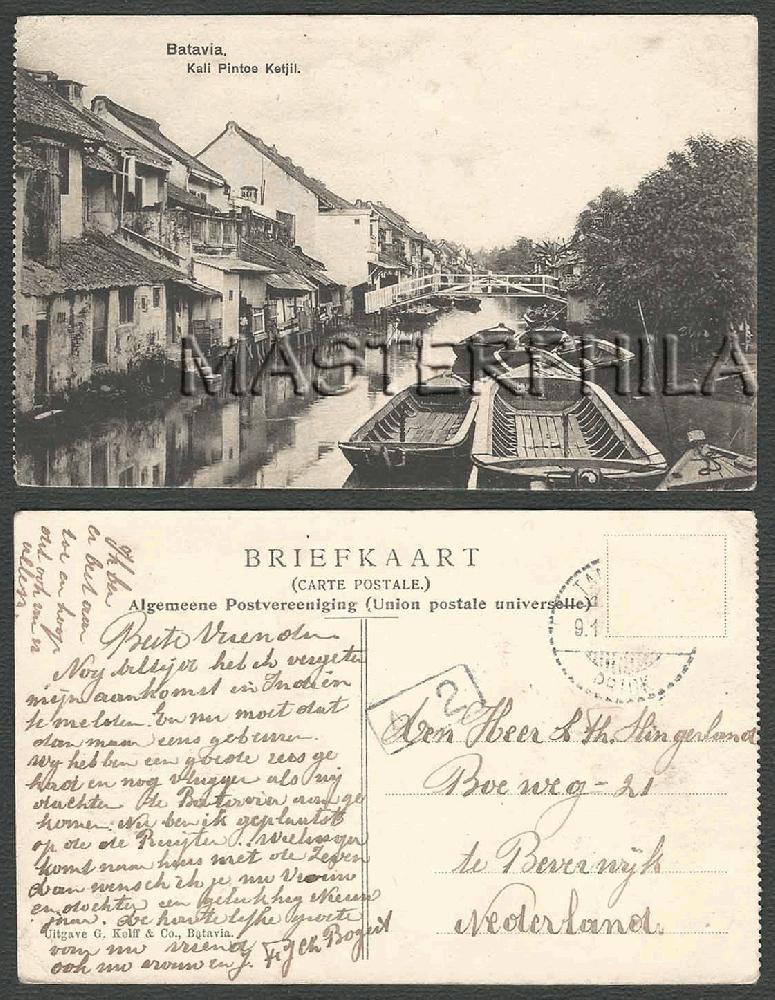 Batavia.
Kali Pintoe Ketjil.
MASTERPHILA
BRIEFKAART
(CARTE POSTALE.)
Algemeene Postvereeniging (Union postale universelle)
Ik ben
er best aan
toe en hoop
dat ook van u
allen.
Beste Vrienden
Nog altijd heb ik vergeten
mijn aankomst in Indiën
te melden. En nu moet dat
dan maar eens gebeuren.
Wij hebben een goede reis ge
had en nog vlugger als wij
dachten te Batavia aange
komen. Nu ben ik geplaatst
op de de Ruijter.
komt naar huis met de Zeven
dan wensch ik je nu Vrouw
en dochter een gelukkig Nieuw
jaar. de hartelijke groete
van uw vriend
ook uw vrouw en
Uitgave G. Kolff & Co., Batavia.
TAN
9.1
PRIOK
2
den Heer L. Th. Slingerland
Boeweg - 21
te Beverwijk
Nederland.